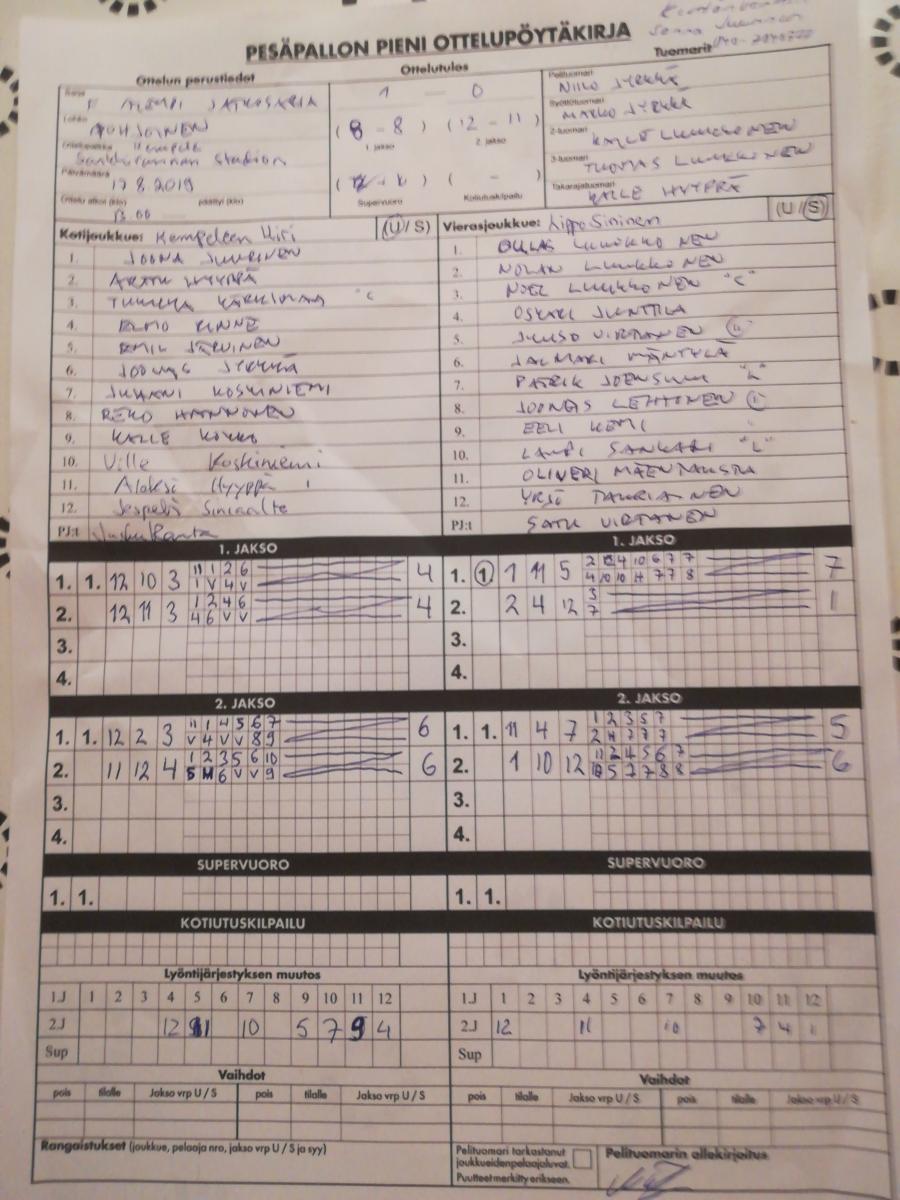 PESÄPALLON PIENI OTTELUPÖYTÄKIRJA
Ottelun perustiedot
Ottelutulos
Tuomarit
Sarja
JATKOSARJA
1 - 0
Pelituomari
NIILO JYRKKÄ
Lohko
POHJOINEN
( 8 - 8 ) ( 12 - 11 )
1. jakso 2. jakso
Syöttötuomari
MARKO JYRKKÄ
Ottelupaikka
Kempele
Sarkkirannan stadion
2-tuomari
KALLE LUUKKONEN
Päivämäärä
17.8.2019
3-tuomari
TUOMAS LUUKKONEN
( - ) ( - )
Supervuoro Kotiutuskilpailu
Ottelu alkoi (klo) päättyi (klo)
13.00
Takarajatuomari
KALLE HYYPPÄ
Kotijoukkue: Kempeleen Kiri (U / S)
Vierasjoukkue: Lippo Sininen (U / S)
1. JOONA JUURINEN
2. ARTTU HYYPPÄ
3. KÄRKIMAA "C
4. ELMO RINNE
5. EMIL JÄRVINEN
6. JOONAS JYRKKÄ
7. JUHANI KOSKINIEMI
8. REKO HANNONEN
9. KALLE KOKKO
10. Ville Koskiniemi
11. Aleksi Hyyppä
12. Jesperi Siniaalto
PJ:t
1. LUUKKONEN
2. NOLAN LUUKKONEN
3. NOEL LUUKKONEN "C"
4. OSKARI JUNTTILA
5. JUUSO VIRTANEN
6. JALMARI MÄNTYLÄ
7. PATRIK JOENSUU "L"
8. JOONAS LEHTONEN
9. EELI KEMI
10. LAURI SANKARI "L"
11. OLIVERI MÄENTAUSTA
12. YRJÖ TAURIAINEN
PJ:t SATU VIRTANEN
1. JAKSO
1. 1. 12 10 3 11 1 2 6 4
1 V 4 V
2. 12 11 3 1 2 4 6 4
4 6 V V
3.
4.
1. JAKSO
1. 1 1 11 5 2 4 10 6 7 7 7
4 10 10 11 7 7 8
2. 2 4 12 3 1
7
3.
4.
2. JAKSO
1. 1. 12 2 3 11 1 4 5 6 7 6
V 4 V V 8 9
2. 11 12 4 1 2 3 5 6 10 6
5 M 6 V V 9
3.
4.
2. JAKSO
1. 1. 11 4 7 1 2 3 5 7 5
2 4 7 7 7
2. 1 10 12 11 2 4 5 6 7 6
10 5 7 7 8 8
3.
4.
SUPERVUORO
1. 1.
SUPERVUORO
1. 1.
KOTIUTUSKILPAILU
KOTIUTUSKILPAILU
Lyöntijärjestyksen muutos
1.J 1 2 3 4 5 6 7 8 9 10 11 12
2.J 12 11 10 5 7 9 4
Sup
Lyöntijärjestyksen muutos
1.J 1 2 3 4 5 6 7 8 9 10 11 12
2.J 12 11 10 7 4 1
Sup
Vaihdot
pois tilalle Jakso vrp U / S pois tilalle Jakso vrp U / S
Vaihdot
pois tilalle Jakso vrp U / S pois tilalle Jakso vrp U / S
Rangaistukset (joukkue, pelaaja nro, jakso vrp U / S ja syy)
Pelituomari tarkastanut
joukkueidenpelaajaluvat.
Puutteet merkitty erikseen.
Pelituomarin allekirjoitus